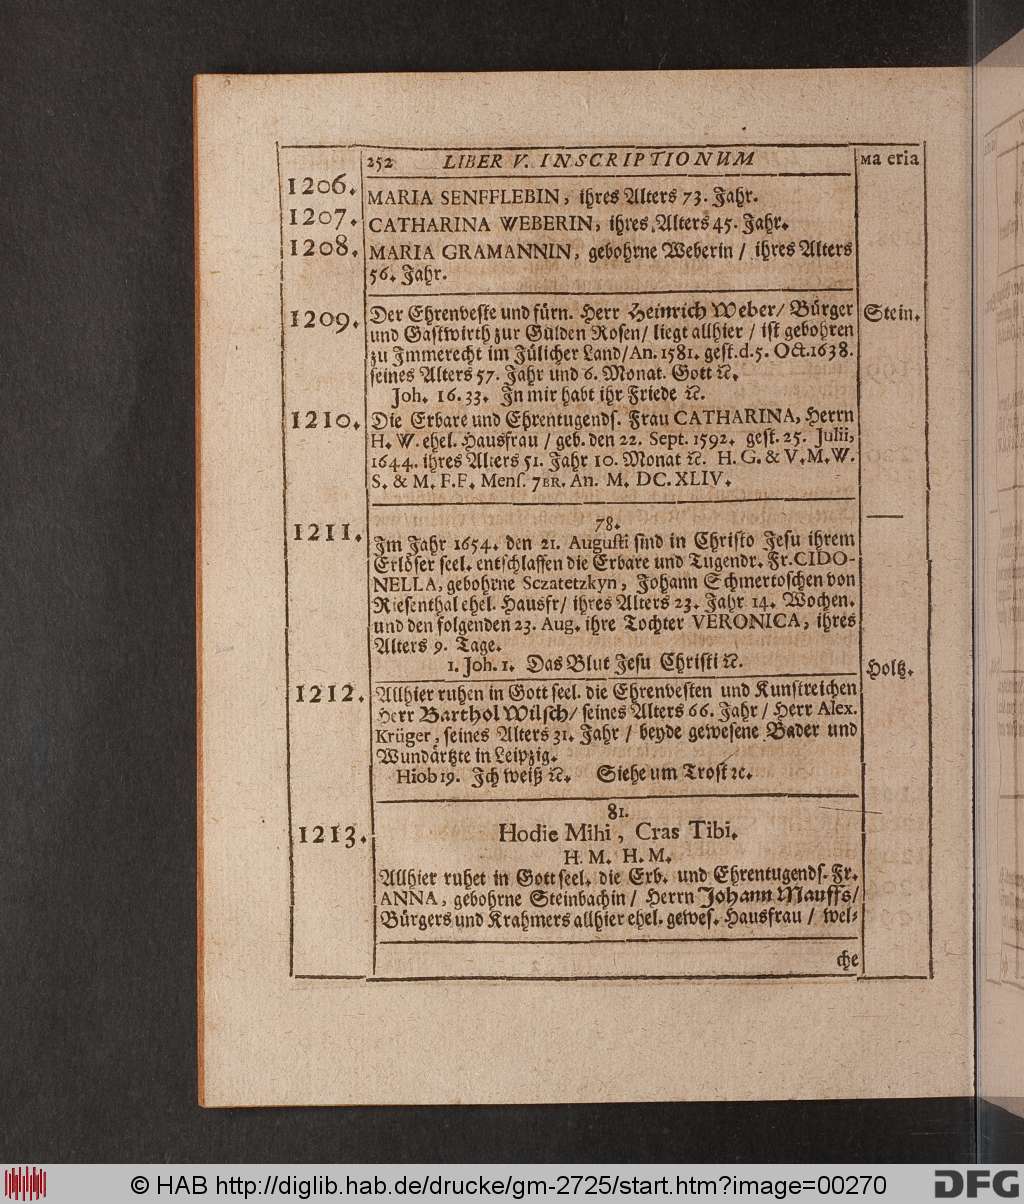 252 LIBER V. INSCRIPTIONUM Ma eria
1206. MARIA SENFFLEBIN, ihres Alters 73. Jahr.
1207. CATHARINA WEBERIN, ihres Alters 45. Jahr.
1208. MARIA GRAMANNIN, gebohrne Weberin / ihres Alters
56. Jahr.
1209. Der Ehrenveste und fürn. Herr Heinrich Weber/ Bürger Stein.
und Gastwirth zur Gülden Rosen/ liegt allhier / ist gebohren
zu Immerecht im Jülicher Land/An. 1581. gest.d.5. Oct.1638.
seines Alters 57. Jahr und 6. Monat. Gott ꝛc.
Joh. 16. 33. In mir habt ihr Friede ꝛc.
1210. Die Erbare und Ehrentugends. Frau CATHARINA, Herrn
H. W. ehel. Hausfrau / geb. den 22. Sept. 1592. gest. 25. Julii,
1644. ihres Alters 51. Jahr 10. Monat ꝛc. H. G. & V.M.W.
S. & M. F.F. Menſ. 7BR. An. M. DC. XLIV.
78.
1211. Im Jahr 1654. den 21. Augusti sind in Christo Jesu ihrem
Erlöser seel. entschlaffen die Erbare und Tugendr. Fr. CIDO-
NELLA, gebohrne Sczatetzkyn, Johann Schmertoschen von
Riesenthal ehel. Hausfr/ ihres Alters 23. Jahr 14. Wochen.
und den folgenden 23. Aug. ihre Tochter VERONICA, ihres
Alters 9. Tage.
1. Joh. 1. Das Blut Jesu Christi ꝛc.
Holtz.
1212. Allhier ruhen in Gott seel. die Ehrenvesten und Kunstreichen
Herr Barthol Wilsch/ seines Alters 66. Jahr / Herr Alex.
Krüger, seines Alters 31. Jahr / beyde gewesene Bader und
Wundärtzte in Leipzig.
Hiob 19. Ich weiß ꝛc. Siehe um Trost ꝛc.
81.
1213. Hodie Mihi, Cras Tibi.
H. M. H. M.
Allhier ruhet in Gott seel. die Erb. und Ehrentugends. Fr.
ANNA, gebohrne Steinbachin / Herrn Johann Mauffs/
Bürgers und Krahmers allhier ehel. gewes. Hausfrau / wel-
che
© HAB http://diglib.hab.de/drucke/gm-2725/start.htm?image=00270
DFG